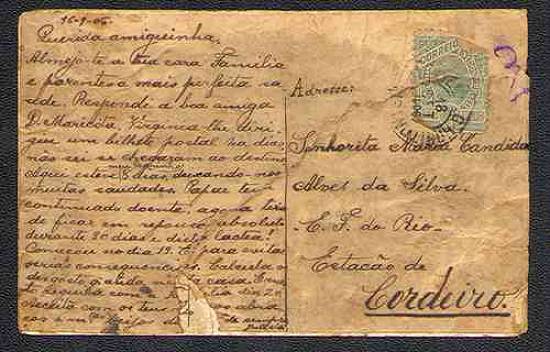 16-9-06
Querida amiguinha,
Almejo-te e tua cara Familia
e parentes a mais perfeita sa
ude. Responde a boa amiga
D. Maricota, Virginia lhe diri
giu um bilhete postal ha dias
não sei se chegaram ao destino.
Aqui esteve 8 dias, deixando-nos
muitas saudades. Papae tem
continuado doente, agora terá
de ficar em repouso absoluto
durante 30 dias e dieta lactea!
Começou no dia 13. É para evitar
serias consequencias. Calcula o
desgosto q. ha de na casa.
Acceita com os teus
de sempre
Adresse:
CORREIO
Senhorita Maria Candida
Alves da Silva.
E. F. do Rio.
Estação de
Cordeiro.